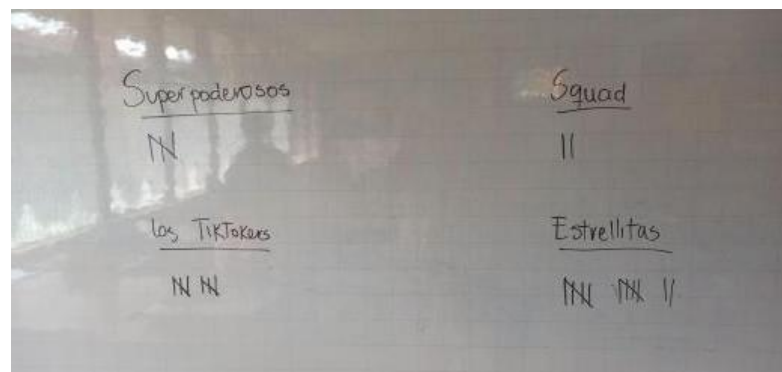 Superpoderosos
Squad
los TikTokers
Estrellitas